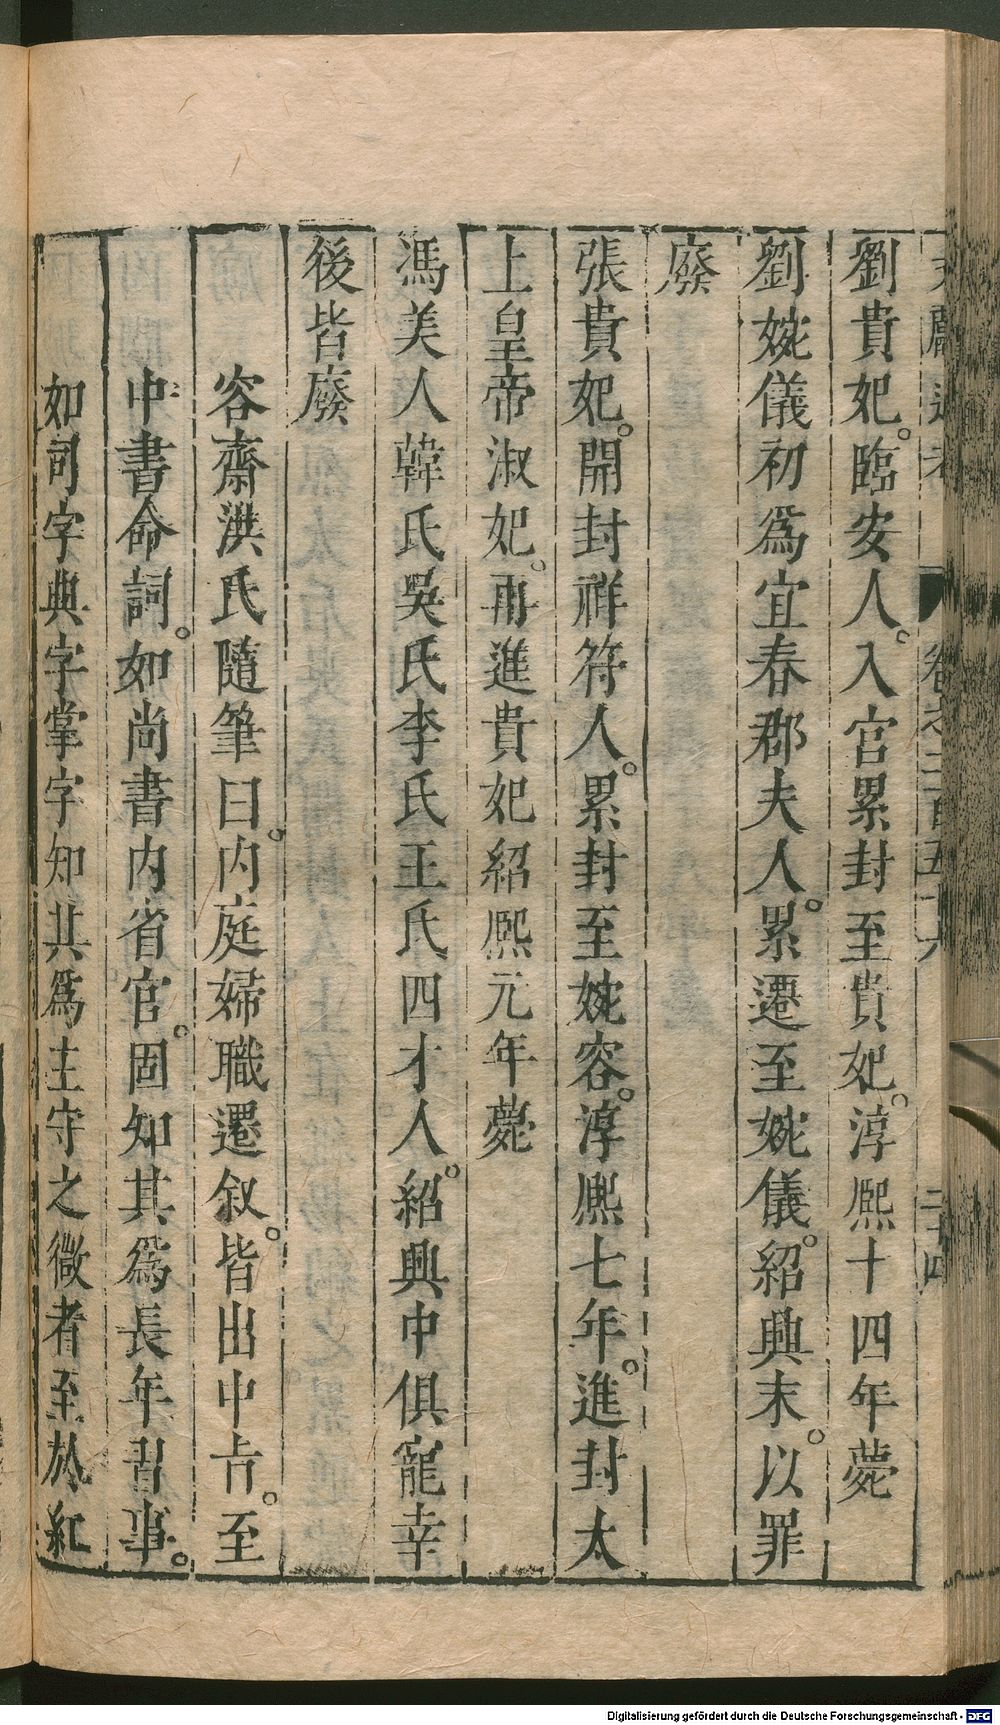 劉貴妃。臨安人。入宮累封至貴妃。淳熈十四年薨
劉婉儀初爲宜春郡夫人。累遷至婉儀。紹興末。以罪
廢
張貴妃。開封祥符人。累封至婉容。淳熈七年。進封太
上皇帝淑妃。再進貴妃紹熈元年薨
馮美人韓氏吳氏李氏王氏四才人。紹興中俱寵幸
後皆廢
容齋洪氏隨筆曰。内庭婦職遷叙。皆出中㫖。至
中書命詞。如尚書内省官。固知其爲長年習事。
如司字典字掌字知其爲主守之微者至於紅
Digitalisierung gefördert durch die Deutsche Forschungsgemeinschaft - DFG